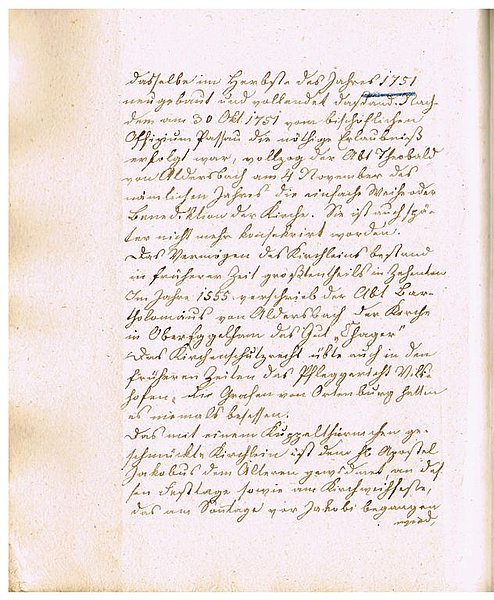 dasselbe im Herbste des Jahres 1751
neugebaut und vollendet dastand. Nach-
dem am 30 Okt 1751 vom bischöflichen
Offizium Passau die nöthige Erlaubniß
erfolgt war, vollzog der Abt Theobald
von Aldersbach am 4 November des
nämlichen Jahres die einfache Weihe oder
Benediktion der Kirche. Sie ist auch spä-
ter nicht mehr konsekrirt worden.
Das Vermögen des Kirchleins bestand
in früherer Zeit größtentheils in Zehenten
Im Jahre 1555 verschrieb der Abt Bar-
tholomäus von Aldersbach der Kirche
in Oberegglham das Gut „Thager"
Das Kirchenschutzrecht übte auch in den
früheren Zeiten das Pfleggericht Vils-
hofen, die Grafen von Ortenburg hatten
es niemals besessen.
Das mit einem Kuppelthürmchen ge-
schmückte Kirchlein ist dem hl. Apostel
Jakobus dem Älteren gewidmet an des-
sen Festtage sowie am Kirchweihfeste,
das am Sonntage vor Jakobi begangen
wird,